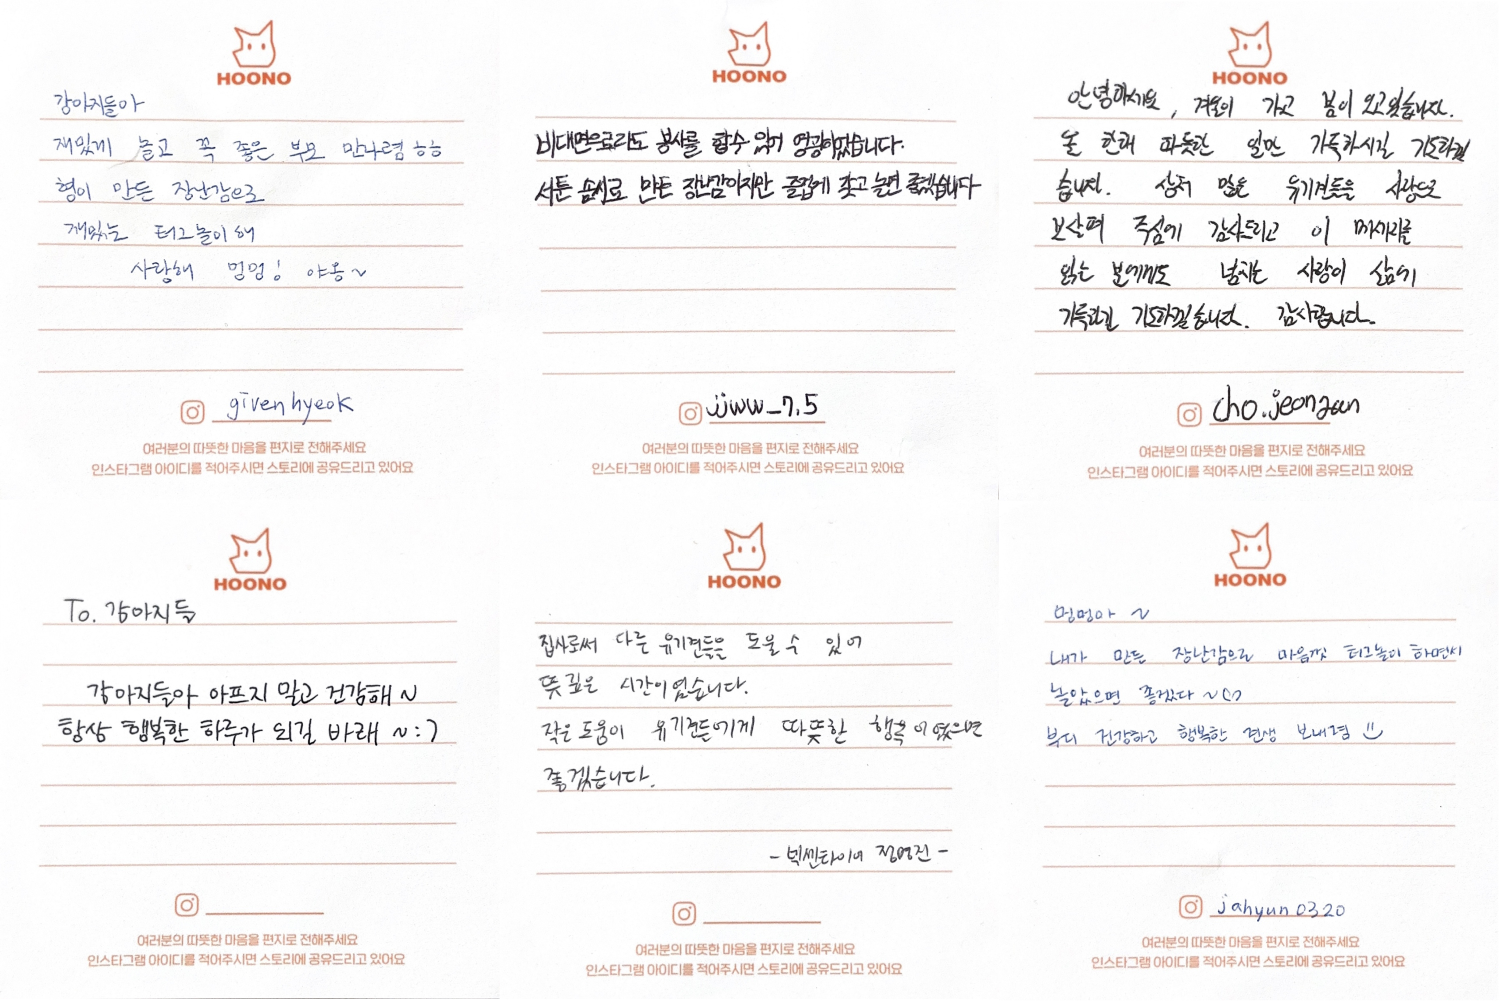 HOONO
강아지들아
재밌게 놀고 꼭 좋은 부모 만나렴 ㅎㅎ
형이 만든 장난감으로
재밌는 터그놀이 해
사랑해 멍멍! 야옹~
givenhyeok
여러분의 따뜻한 마음을 편지로 전해주세요
인스타그램 아이디를 적어주시면 스토리에 공유드리고 있어요
HOONO
비대면으로라도 봉사를 할수 있어 영광이었습니다.
서툰 솜씨로 만든 장난감이지만 즐겁게 갖고 놀면 좋겠습니다
jjww_7.5
여러분의 따뜻한 마음을 편지로 전해주세요
인스타그램 아이디를 적어주시면 스토리에 공유드리고 있어요
HOONO
안녕하세요, 겨울이 가고 봄이 오고있습니다.
올 한해 따뜻한 일만 가득하시길 기도하겠
습니다. 상처 많은 유기견들을 사랑으로
보살펴 주심에 감사드리고 이 메세지를
읽는 분에게도 넘치는 사랑이 삶에
가득하길 기도하겠습니다. 감사합니다.
여러분의 따뜻한 마음을 편지로 전해주세요
인스타그램 아이디를 적어주시면 스토리에 공유드리고 있어요
HOONO
To. 강아지들
강아지들아 아프지 말고 건강해~
항상 행복한 하루가 되길 바래~:)
여러분의 따뜻한 마음을 편지로 전해주세요
인스타그램 아이디를 적어주시면 스토리에 공유드리고 있어요
HOONO
집사로써 다른 유기견들을 도울 수 있어
뜻 깊은 시간이였습니다.
작은 도움이 유기견들에게 따뜻한 행복이 였으면
좋겠습니다.
- 넥센타이어 정영진 -
여러분의 따뜻한 마음을 편지로 전해주세요
인스타그램 아이디를 적어주시면 스토리에 공유드리고 있어요
HOONO
멍멍아 ~
내가 만든 장난감으로 마음껏 터그놀이 하면서
놀았으면 좋겠다 ~
부디 건강하고 행복한 견생 보내렴
jahyun0320
여러분의 따뜻한 마음을 편지로 전해주세요
인스타그램 아이디를 적어주시면 스토리에 공유드리고 있어요